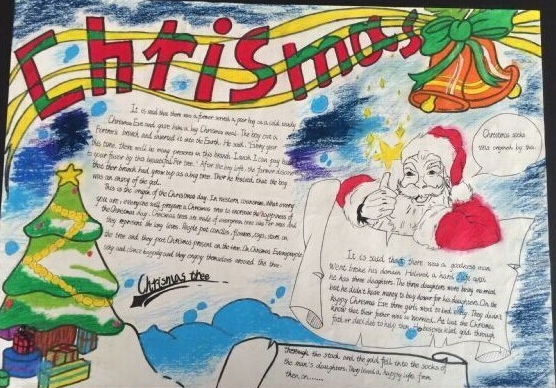 Christmas
It is said that there was a farmer served a poor boy on a cold snowy
Christmas Eve and gave him a big Christmas meal. The boy cut a
branch and inserted it into the Earth. He said, "Every year
this time, there will be many presents in this branch. I wish I can pay back
to your favor by this beautiful Fir tree." After the boy left, the farmer discovered
that their branch had grown up as a big tree. Then he realized that the boy
was an of the god.
This is the origin of the Christmas day. In western countries, What every
you are, everyone will prepare a Christmas tree to increase the happiness of
the Christmas day. Christmas trees are made of evergreen tree like Fir tree and
they represent the long lives. People put candles, flowers, toys, stars on
the tree and they put Christmas present on the tree. On Christmas Eve, people
sing and dance happily and they enjoy themselves around the tree.
Chrismas tree
Christmas socks
was original by this.
It is said that there was a goodness man
Went broke his domain. Helived a hard life with
he has three daughters. The three daughters were being married
but he didn't have money to buy dower for his daughters. On the
happy Christmas Eve three girls went to bed early. They didn't
know that their father was so worried. At last the Christmas
father decided to help them. He gold through
Thorough the stock and the gold fell into the socks of
the man's daughters. They lived a happy life from
then on......